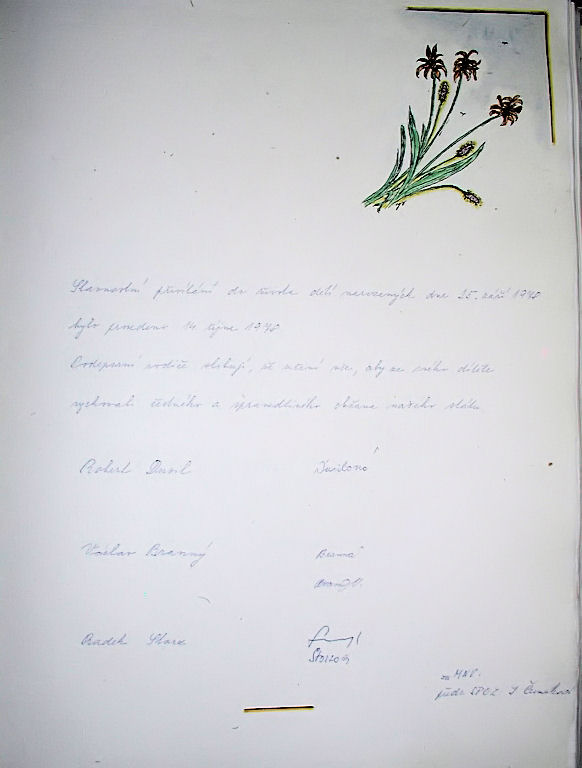 Slavnostní přivítání do života dětí narozených dne 25. září 1978
bylo provedeno 14. října 1978.
Podepsaní rodiče slibují, že učiní vše, aby ze svého dítěte
vychovali čestného a spravedlivého občana našeho státu.
Robert Dusil Dusilová
Václav Branný Branná
Radek Storx
za MNV.
předs. SPOZ. J.